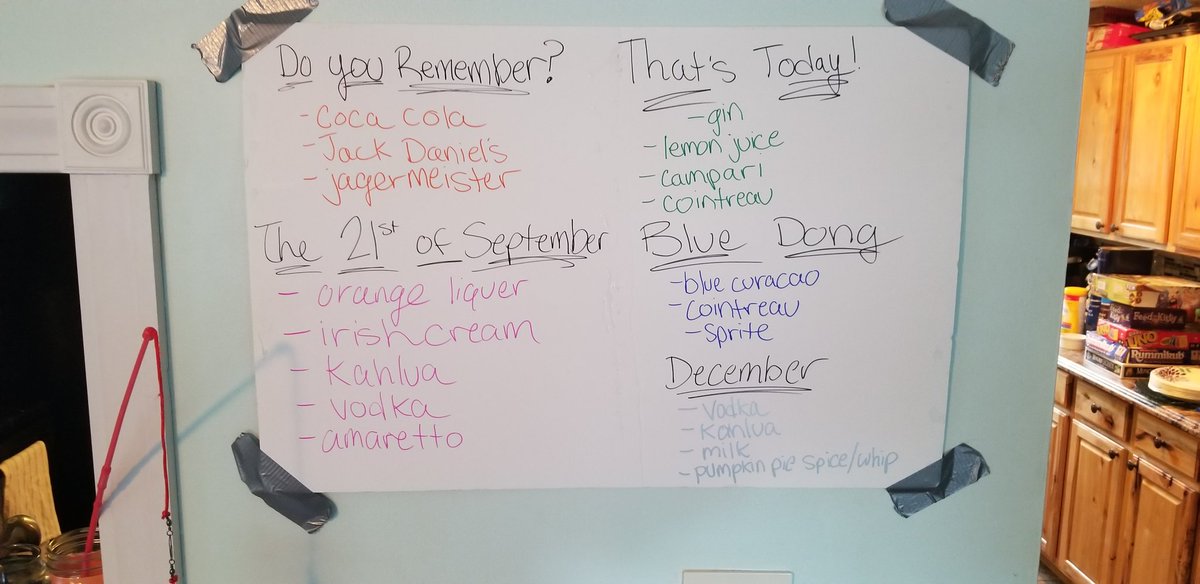 Do you Remember?
- coca cola
- Jack Daniel's
- jagermeister
The 21st of September
- orange liquer
- irish cream
- Kahlua
- vodka
- amaretto
That's Today!
- gin
- lemon juice
- campari
- cointreau
Blue Dong
- blue curacao
- cointreau
- sprite
December
- vodka
- Kahlua
- milk
- pumpkin pie spice/whip
UNO
Rummikub